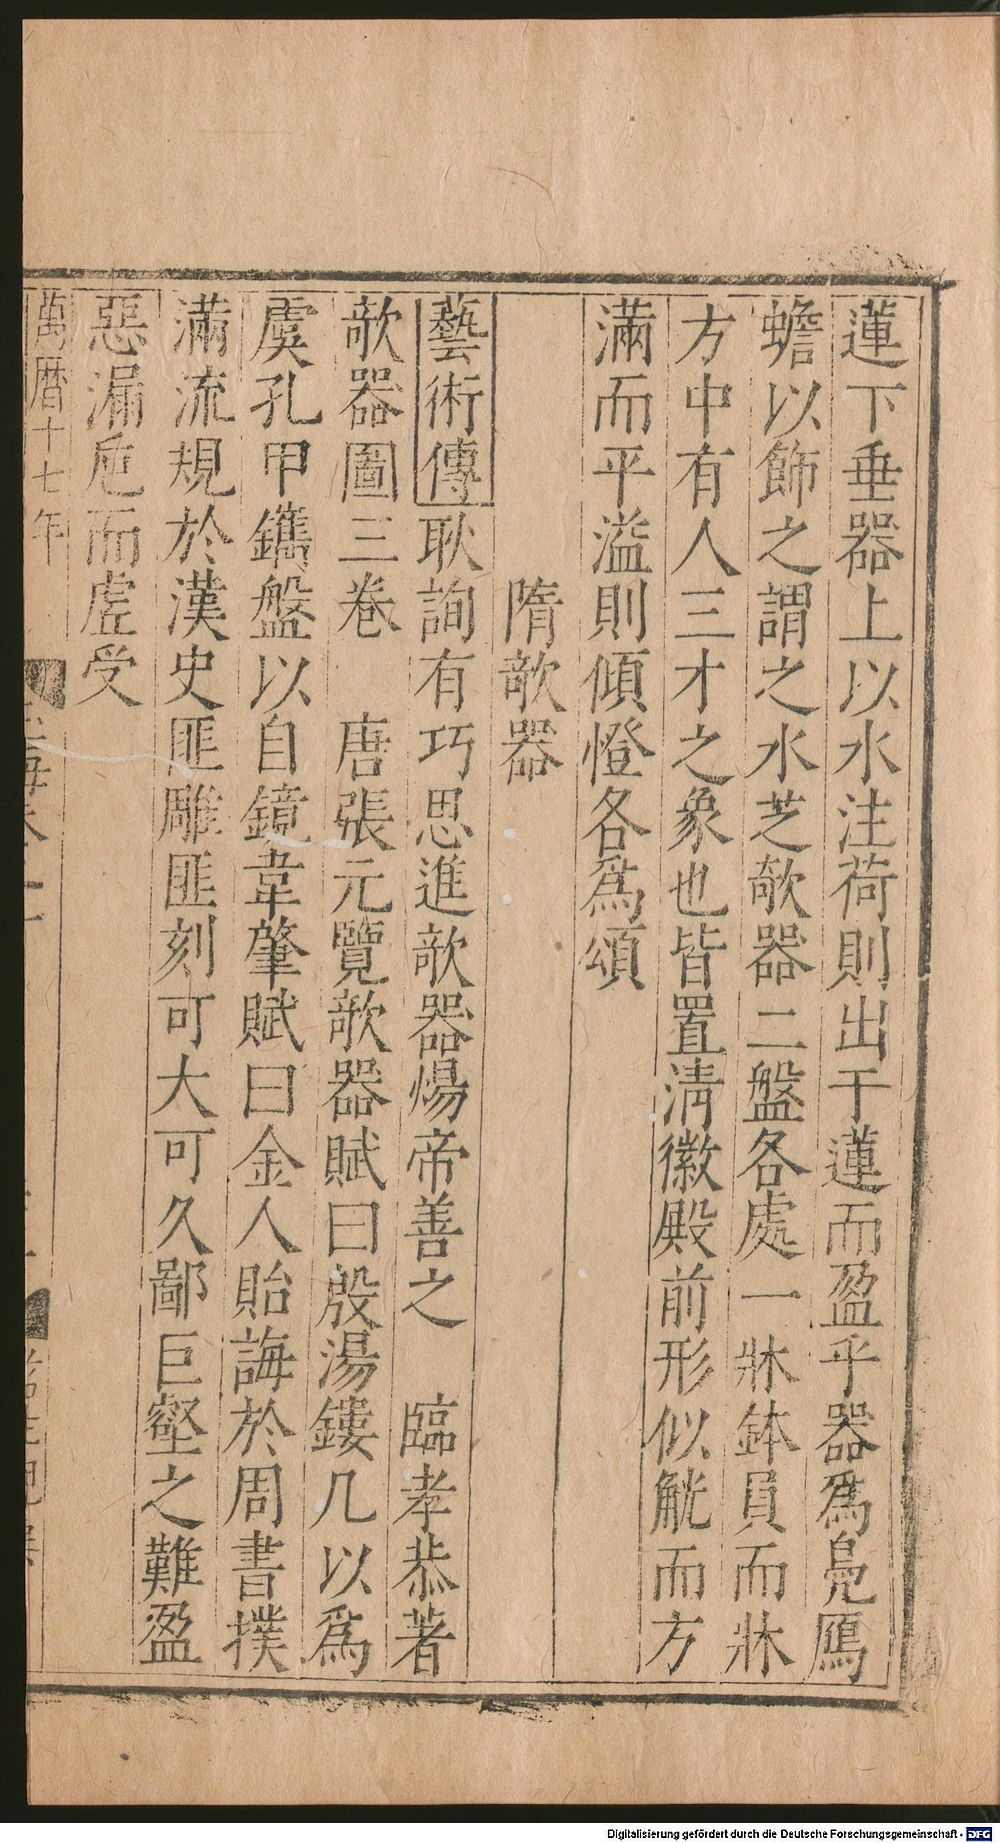 蓮下垂器上以水注荷則出于蓮而盈乎器爲鳧鴈
蟾以飾之謂之水芝欹器二盤各處一牀鉢員而牀
方中有人三才之象也皆置淸徽殿前形似觥而方
滿而平溢則傾燈各爲頌
隋欹器
藝術傳耿詢有巧思進欹器煬帝善之 臨孝恭著
欹器圖三卷 唐張元覽欹器賦曰殷湯鏤几以爲
虞孔甲鐫盤以自鏡韋肇賦曰金人貽誨於周書撲
滿流規於漢史匪雕匪刻可大可久鄙巨壑之難盈
惡漏巵而虛受
萬曆十七年
Digitalisierung gefördert durch die Deutsche Forschungsgemeinschaft - DFG